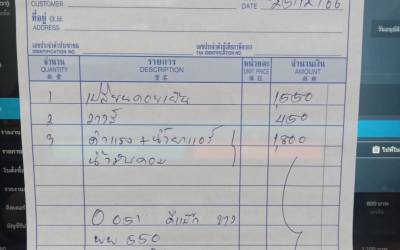 CUSTOMER DATE 25/12/66
ที่อยู่
ADDRESS
เลขประจำตัวประชาชน เลขประจำตัวผู้เสียภาษีอากร
IDENTIFICATION NO. TAX IDENTIFICATION NO.
จำนวน รายการ หน่วยละ จำนวนเงิน
QUANTITY DESCRIPTION UNIT PRICE AMOUNT
1 เปลี่ยนคอยเย็น 1,550
2 วาวล์ 450
3 ค่าแรง + น้ำยาแอร์ 1,800
O 051 ดีแม็ก ขาว
ผผ 550